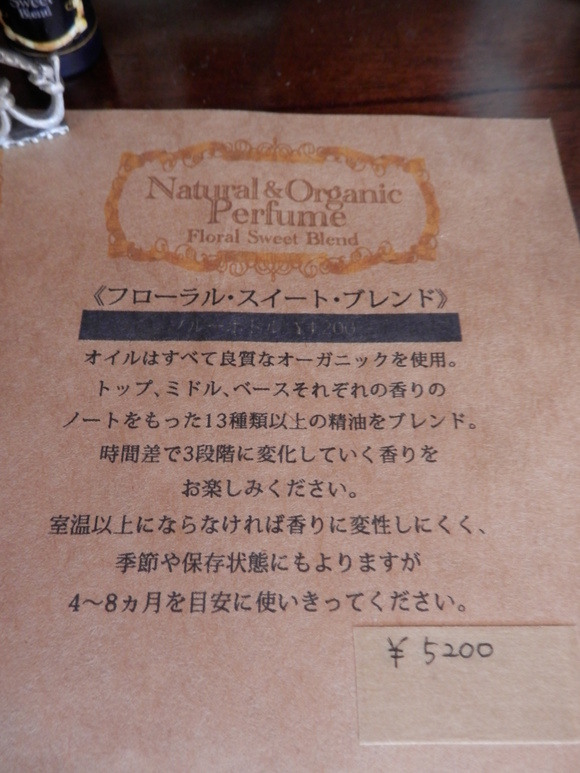 Sweet
Blend
Natural & Organic
Perfume
Floral Sweet Blend
《フローラル・スイート・ブレンド》
ブルーボトル ¥4200
オイルはすべて良質なオーガニックを使用。
トップ、ミドル、ベースそれぞれの香りの
ノートをもった13種類以上の精油をブレンド。
時間差で3段階に変化していく香りを
お楽しみください。
室温以上にならなければ香りに変性しにくく、
季節や保存状態にもよりますが
4～8ヵ月を目安に使いきってください。
¥5200